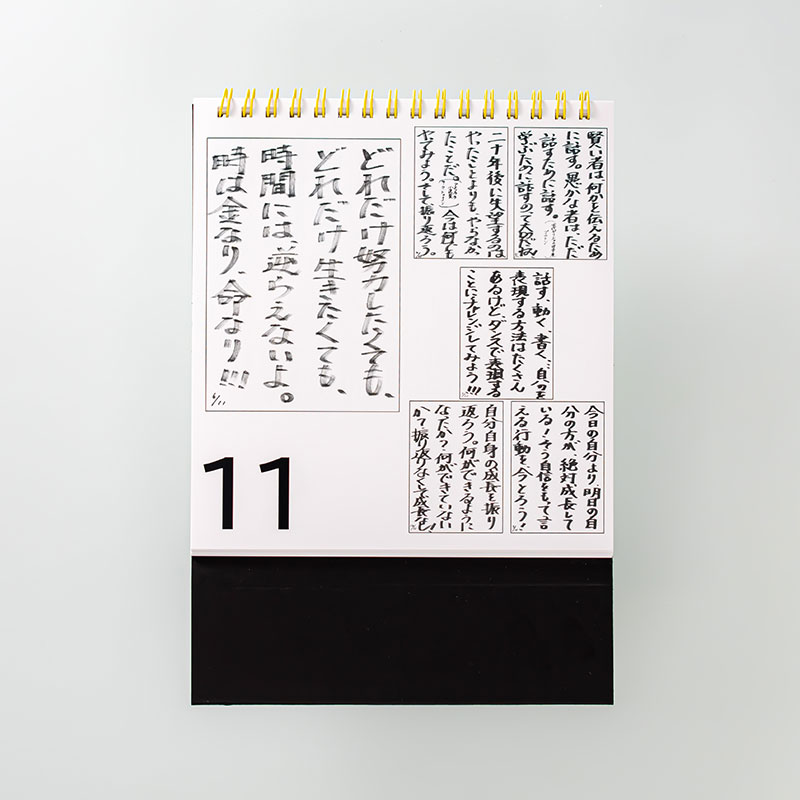 どれだけ努力したくても、
どれだけ生きたくても、
時間には、逆らえないよ。
時は金なり、命なり!!!
賢い者は何かを伝えるため
に話す。愚かな者は、ただ
話すために話す。
学ぶために話すのって大切だね!
二十年後に失望するのは
やったことよりも、やらなか
たことだ。今は何でも
やってみよう。そして振り返ろう。
話す、動く、書く、…自分を
表現する方法はたくさん
あるけど、ダンスで表現する
ことにチャレンジしてみよう!!!
今日の自分より、明日の自
分の方が、絶対、成長して
いる!そう自信をもって言
える行動を、今とろう!
自分自身の成長を振り
返ろう。何ができるように
なったか?何ができていない
か?振り返りなくして成長なし!
11